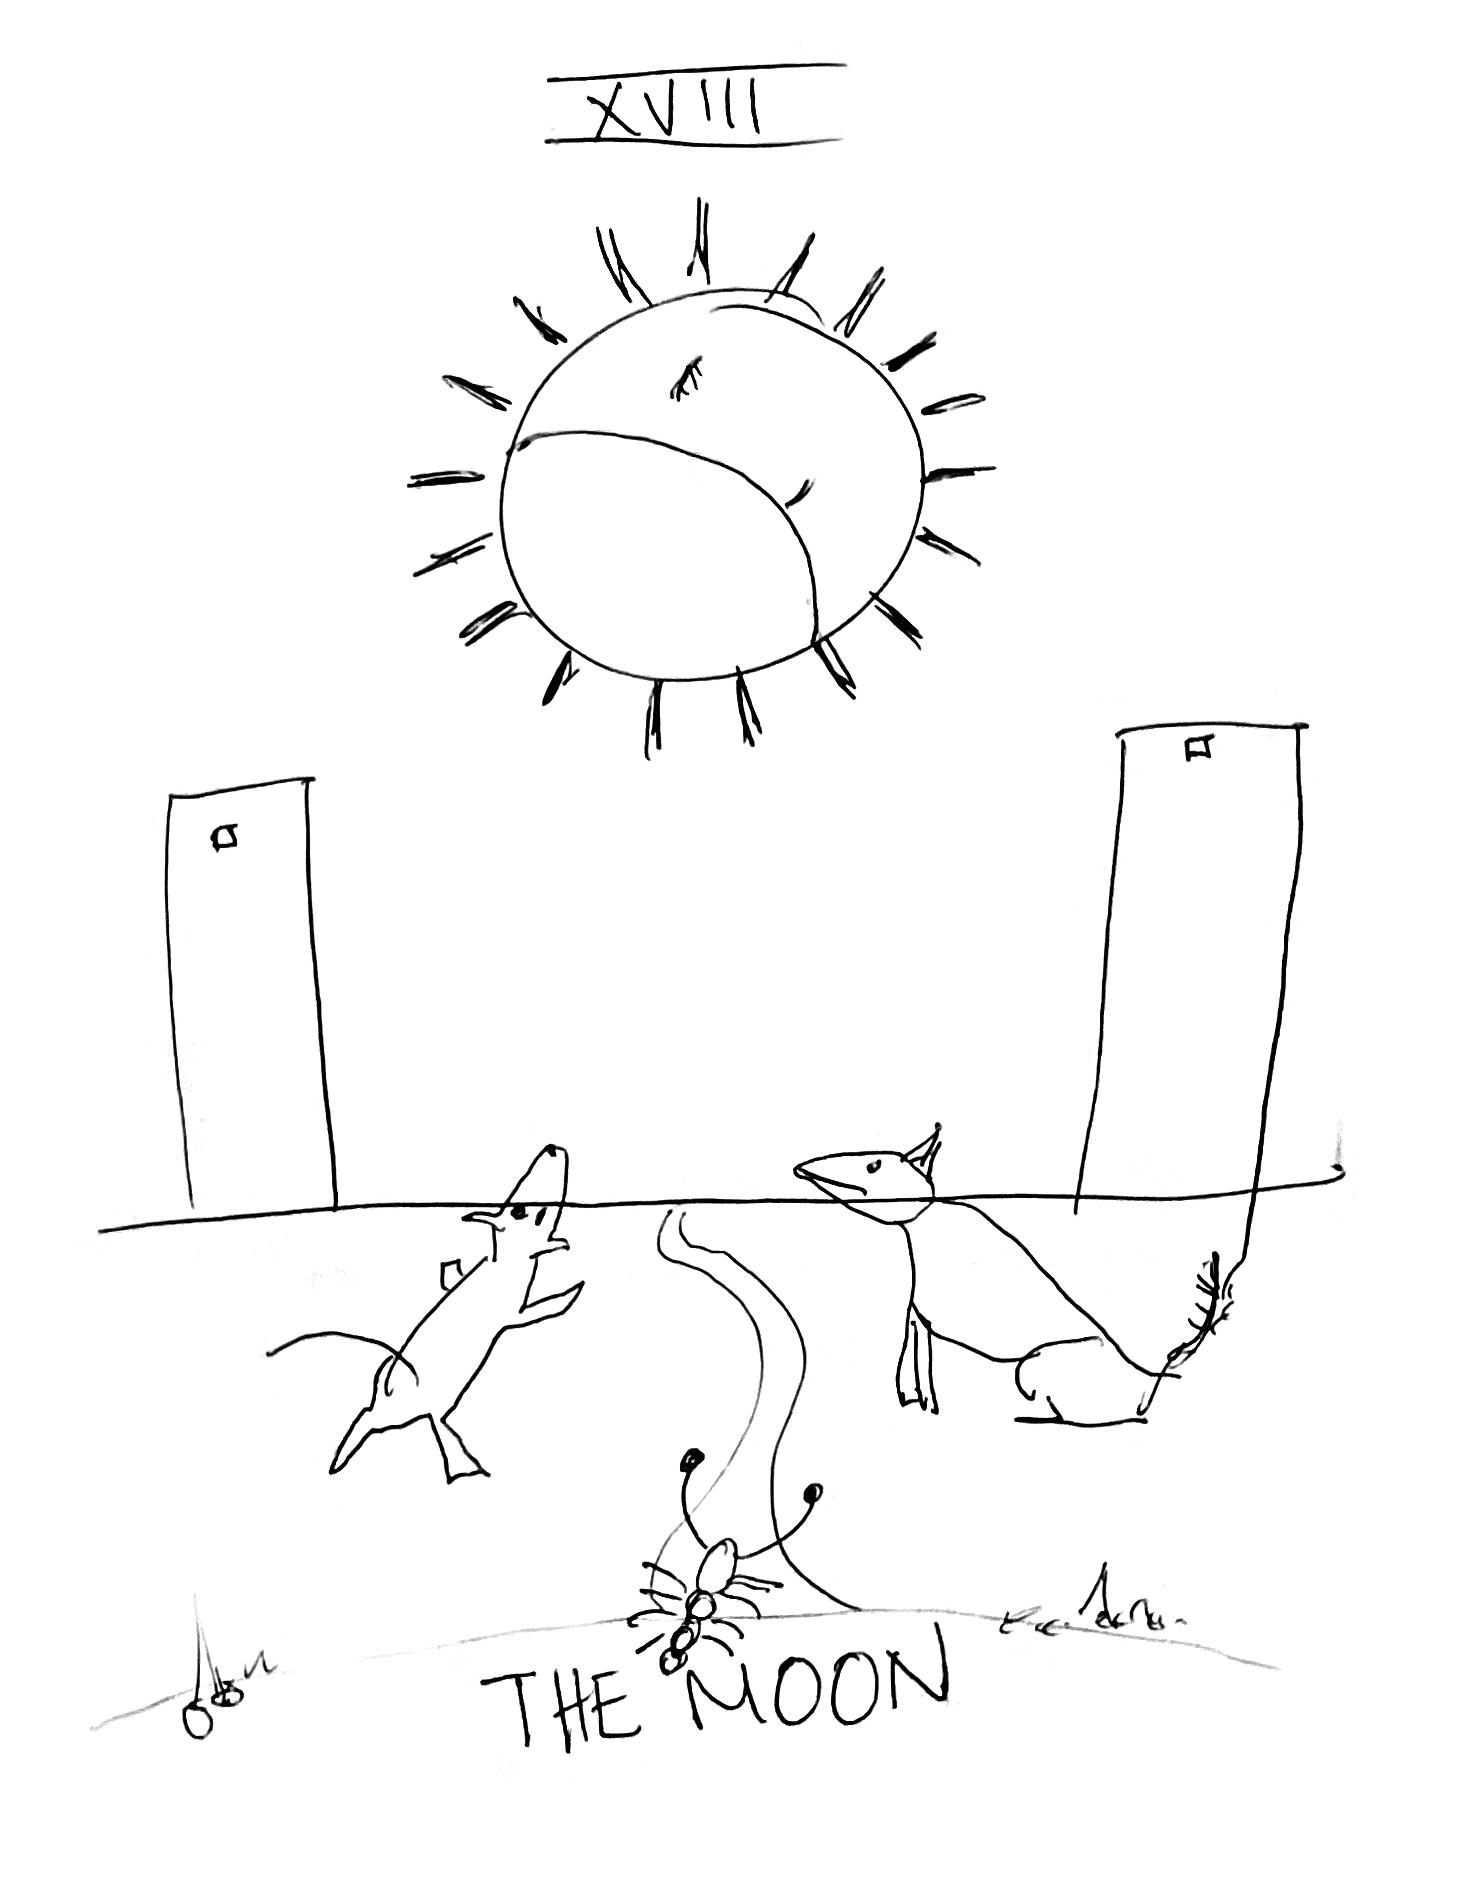 XVIII
THE MOON